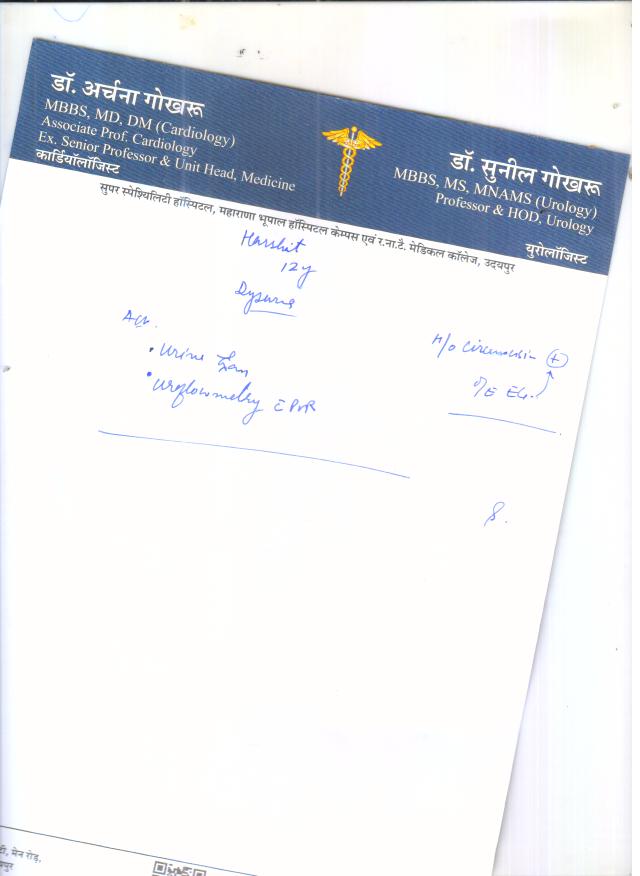 डॉ. अर्चना गोखरू
MBBS, MD, DM (Cardiology)
Associate Prof. Cardiology
Ex. Senior Professor & Unit Head, Medicine
कार्डियॉलॉजिस्ट
डॉ. सुनील गोखरू
MBBS, MS, MNAMS (Urology)
Professor & HOD, Urology
युरोलॉजिस्ट
सुपर स्पेश्यिलिटी हॉस्पिटल, महाराणा भूपाल हॉस्पिटल केम्पस एवं र.ना.टै. मेडिकल कॉलेज, उदयपुर
Harshit
12y
Dysuria
Adv.
• Urine Exam
• Uroflowmetry c PVR
H/o Circumcision +
O/E
मेन रोड,